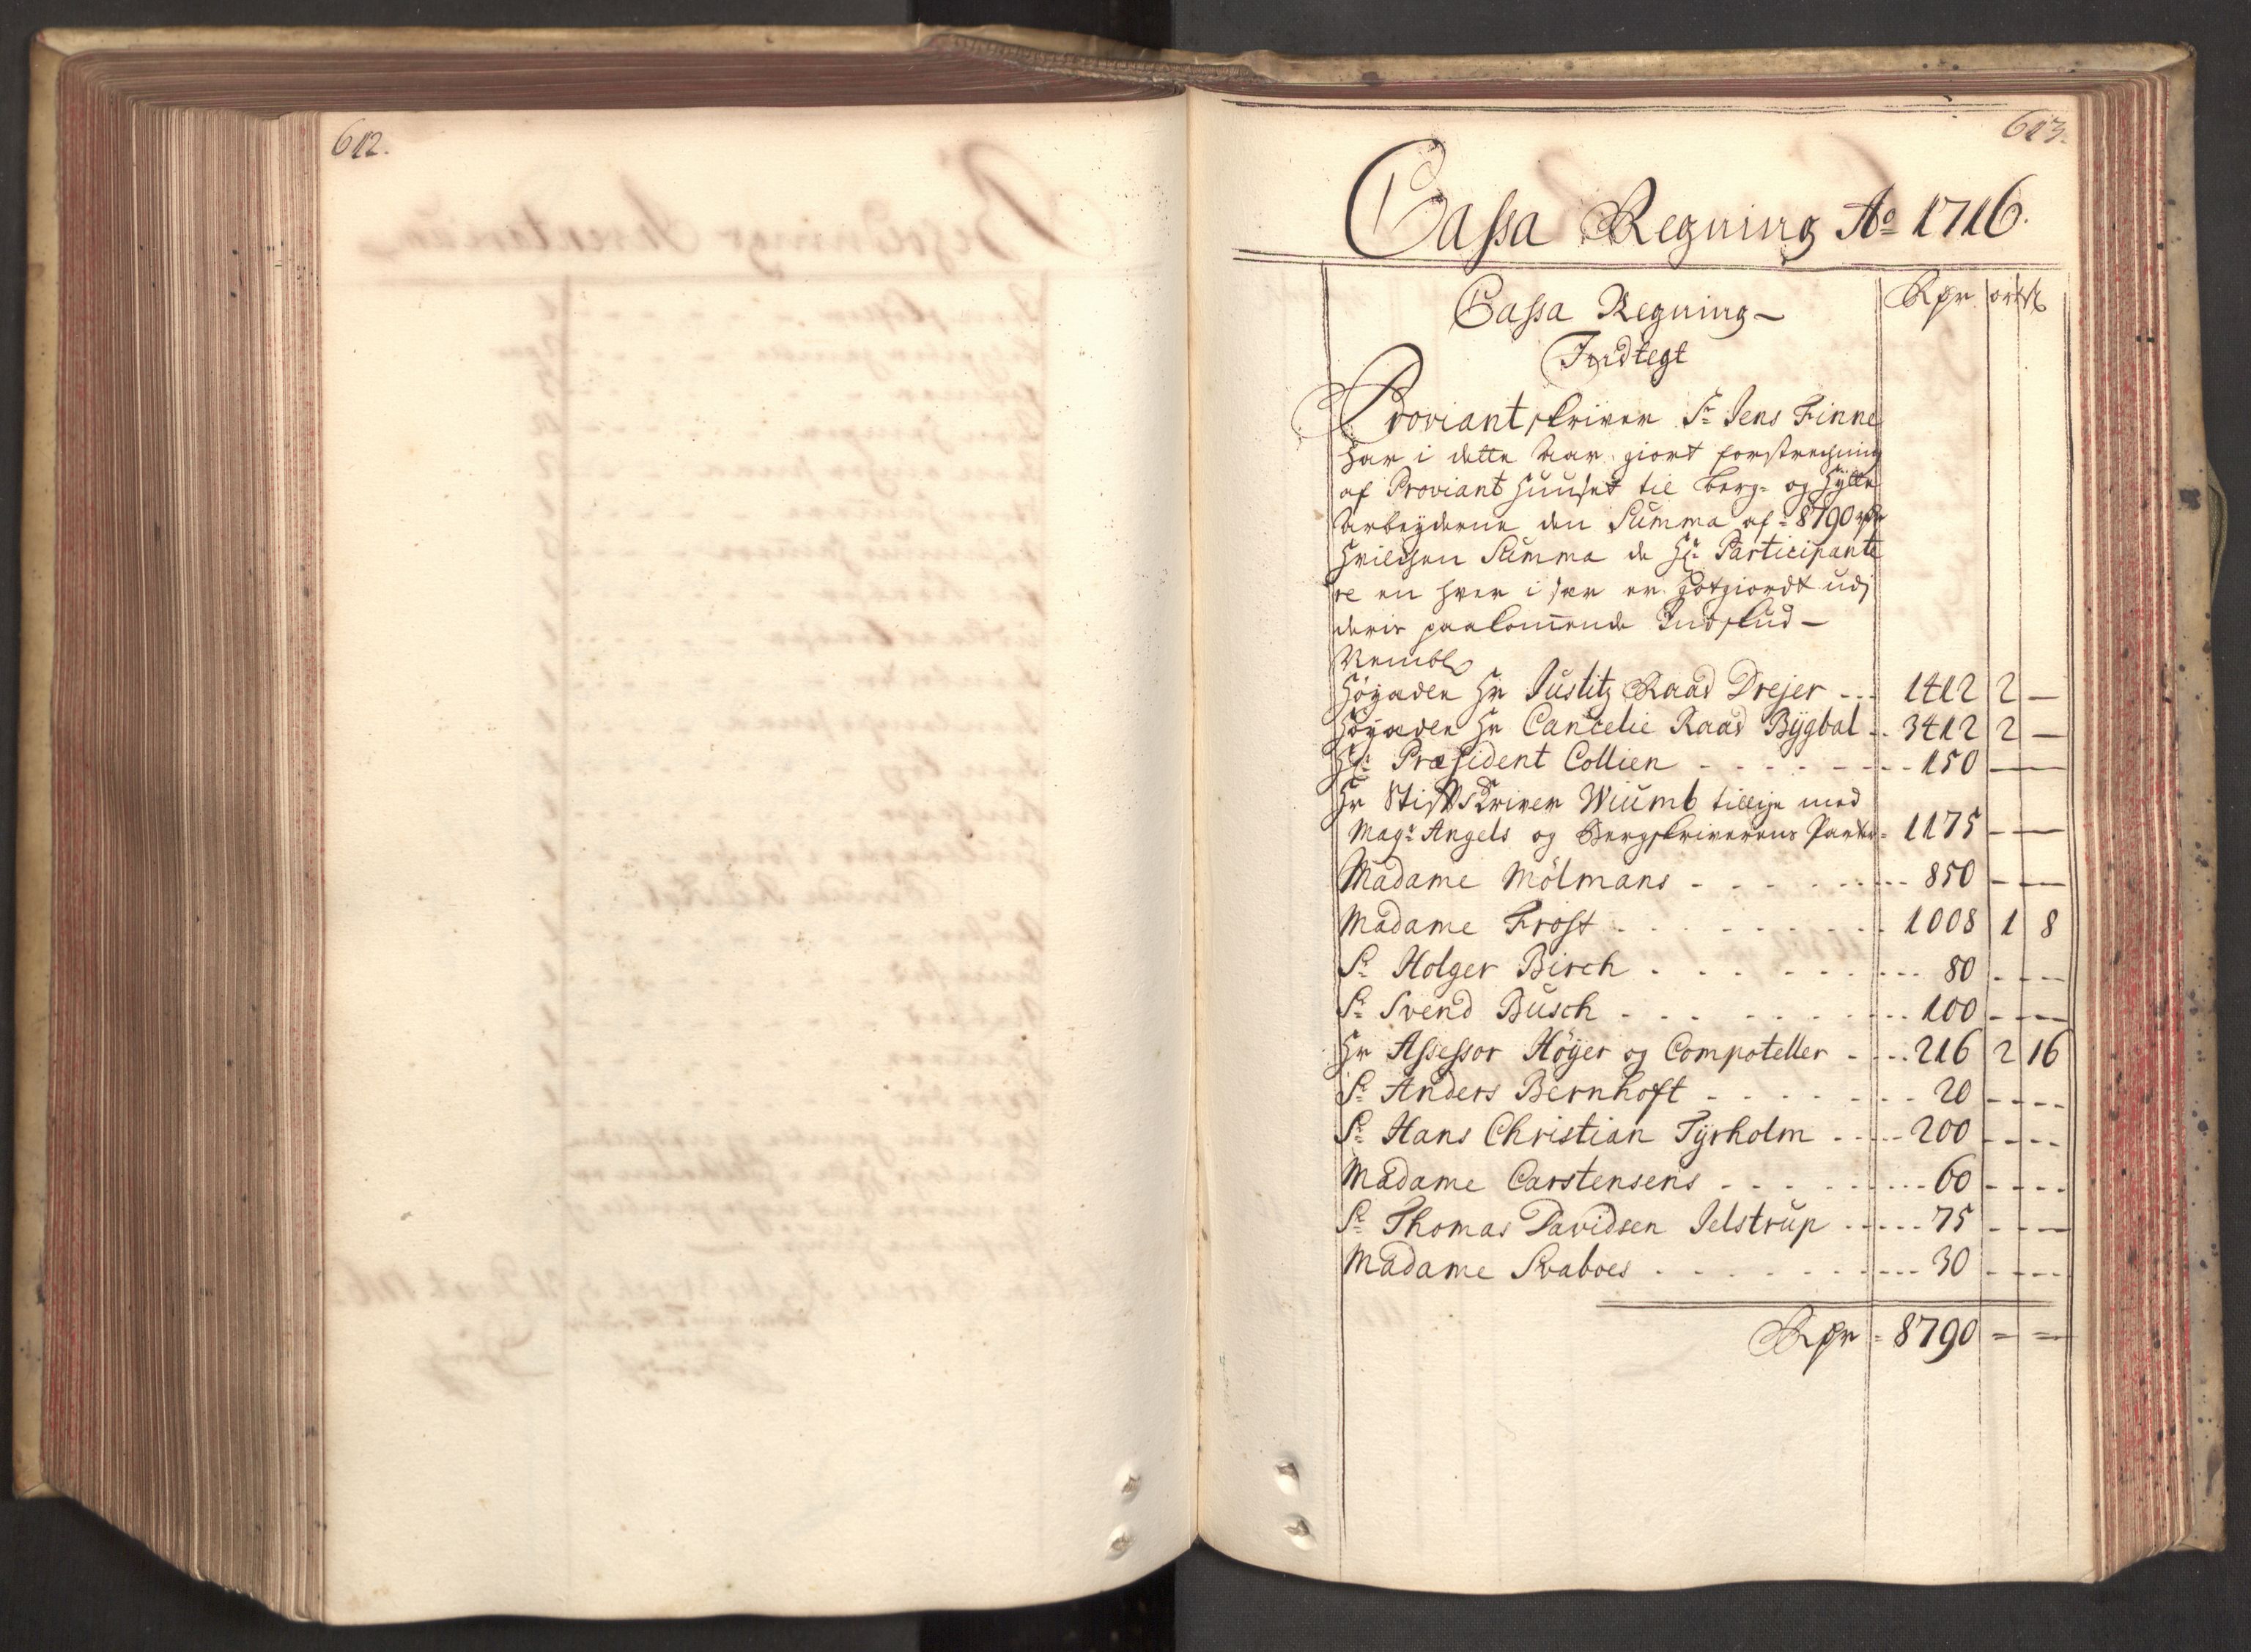 612.
613.
Cassa Regning Ao 1716.
Cassa Regning
Indtegt
Rdr ort sk
Proviantskriver Sr Jens Finne
har i dette Aar giort forstrechning
af Proviant Huuset til Berg- og Hytte
Arbeyderne den Summa af 8790 rdr
Hvilchen Summa de Hr Participante
re en hver i sær er Gotgiordt udj
deris paakommende Indskud
Nembl
Høyædle Hr Justitz Raad Drejer - - - 1412 2 —
Høyædle Hr Cancelie Raad Bÿgbal - - 3412 2 —
Hr Præsident Collien - - - - 150 — —
Hr StiftsSkriver Wiumb tillige med
Magr Angels og Bergskriverens Parter - 1175 — —
Madame Mölmans - - - - 850 — —
Madame Frost - - - - 1008 1 8
Sr Holger Birch - - - - 80 - - -
Sr Svend Busch - - - - 100 - - -
Hr Assessor Höÿer og Compoteller - - - 216 2 16
Sr Anders Bernhoft - - - - 20 - - -
Sr Hans Christian Tÿrholm - - - - 200 - - -
Madame Carstensens - - - - 60 - - -
Sr Thomas Davidsen Jelstrup - - - - 75 - - -
Madame Svaboes - - - - 30 - - -
Rdr = 8790 = =